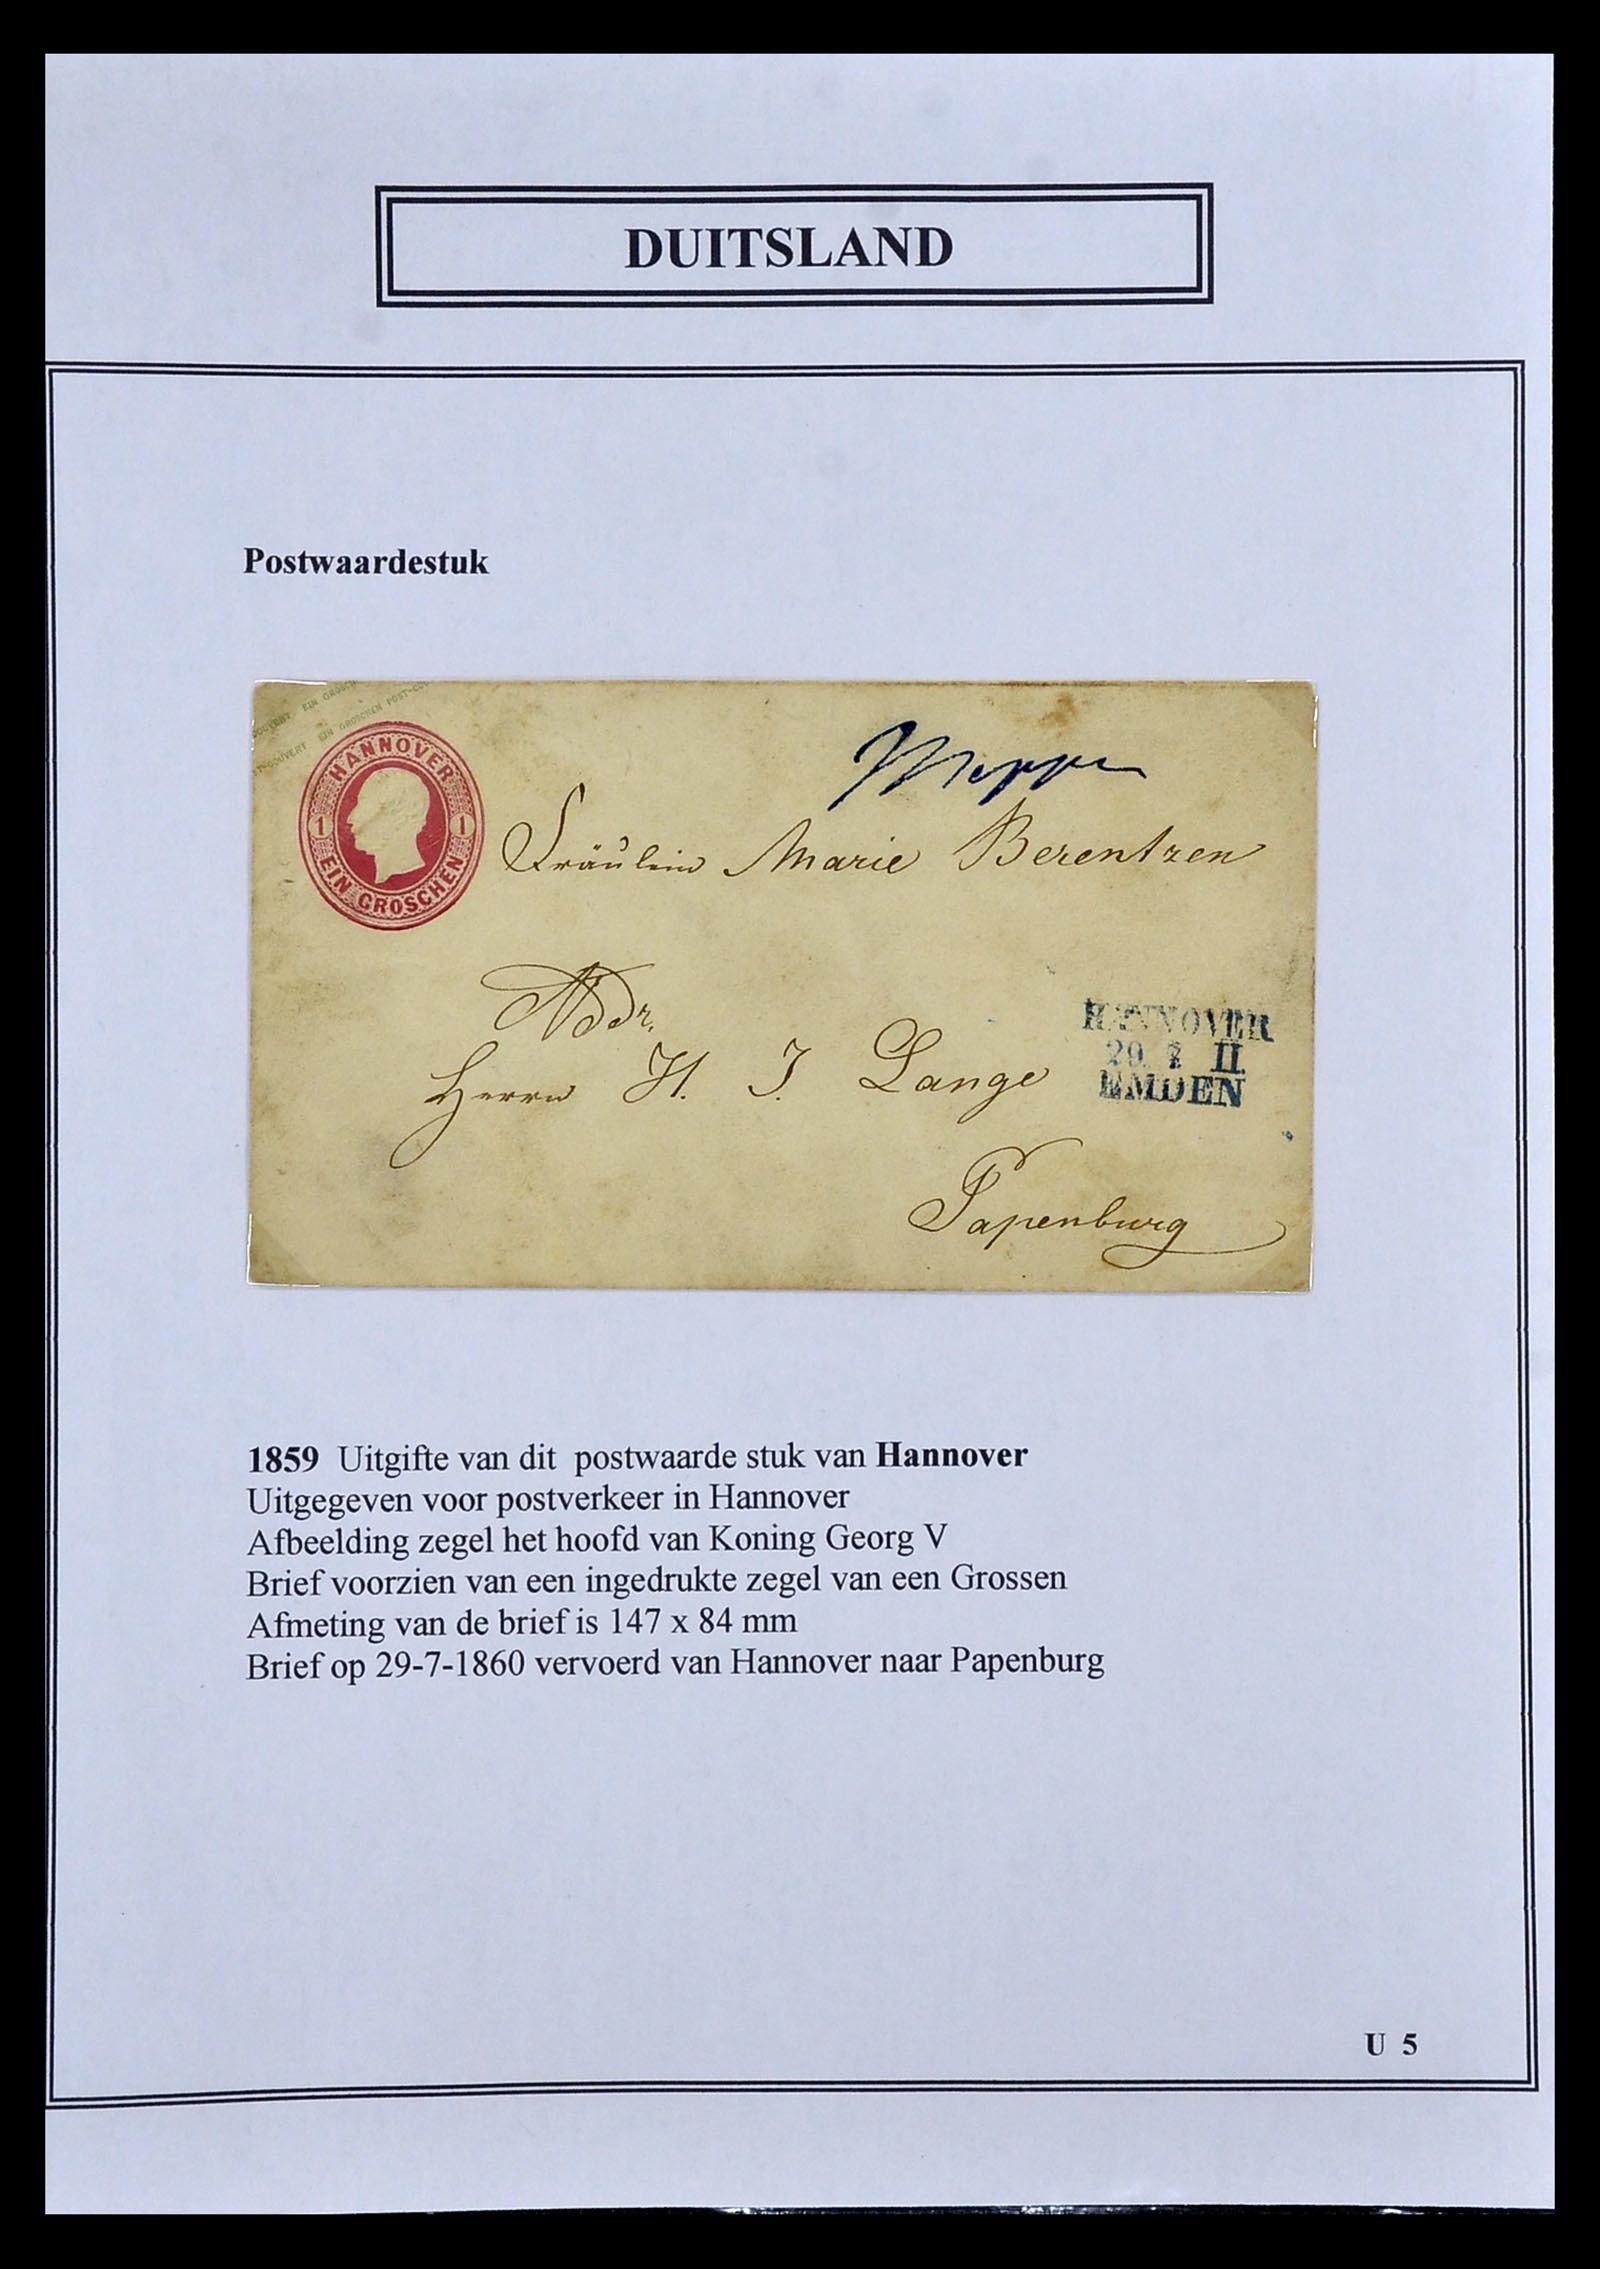 DUITSLAND
Postwaardestuk
COUVERT EIN GROSCH
ST-COUVERT EIN GROSCHEN POST-COU
HANNOVER
1 1
EIN GROSCHEN
Meppen
Fräulein Marie Berentzen
Adr.
Herrn H. J. Lange
HANNOVER
29. 7 II.
EMDEN
Papenburg
1859 Uitgifte van dit postwaarde stuk van Hannover
Uitgegeven voor postverkeer in Hannover
Afbeelding zegel het hoofd van Koning Georg V
Brief voorzien van een ingedrukte zegel van een Grossen
Afmeting van de brief is 147 x 84 mm
Brief op 29-7-1860 vervoerd van Hannover naar Papenburg
U 5